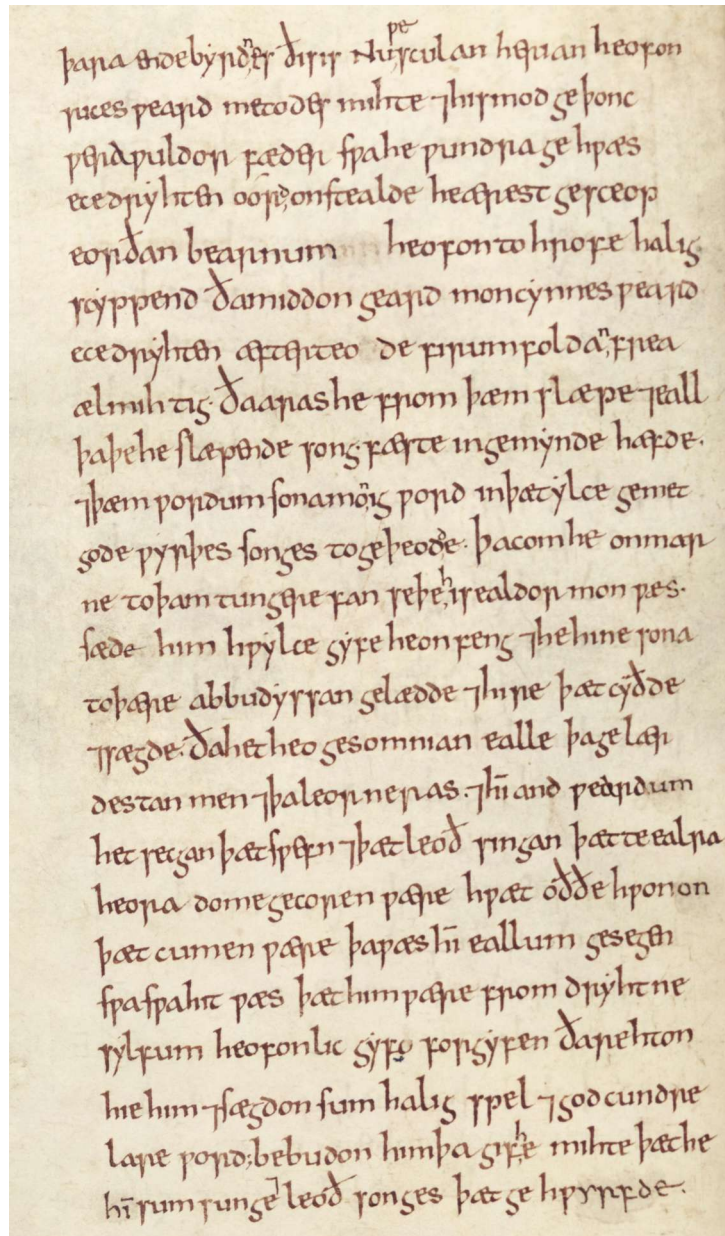 þara endebyrdnes ðis is Nu we sculan herian heofon
rices ƿeard metodes mihte ⁊ his modgeþonc
ƿera ƿuldor fæder sƿa he ƿundra gehƿæs
ece dryhten oord onstealde he ærest gesceop
eorðan bearnum heofon to hrofe halig
scyppend ða middongeard moncynnes ƿeard
ece dryhten æfter teo de firum foldan frea
ælmihtig. ða aras he from þæm slæpe ⁊ eall
þa þe he slæpende song fæste in gemynde hæfde.
⁊ þæm ƿordum sona monig ƿord in þæt ylce gemet
gode ƿyrþes songes togeþeodde. þa com he on mar
ne to þam tungerefan se þe his ealdormon ƿæs.
sæde him hƿylce gyfe he onfeng ⁊ he hine sona
to þære abbudyssan gelædde ⁊ hire þæt cyðde
⁊ sægde. ða het heo gesomnian ealle þa gelær
destan men ⁊ þa leorneras. ⁊ hī andƿeardum
het secgan þæt sƿefn ⁊ þæt leoð singan þætte ealra
heora dome gecoren ƿære hƿæt oððe hƿonon
þæt cumen ƿære þa ƿæs hī eallum gesegen
sƿa sƿa hit ƿæs þæt him ƿære from dryhtne
sylfum heofonlic gyfo forgyfen ða rehton
hie him ⁊ sægdon sum halig spel ⁊ godcundre
lare ƿord; bebudon him þa gif he mihte þæt he
hī sum sunge leoð songes þæt gehƿyrfde.